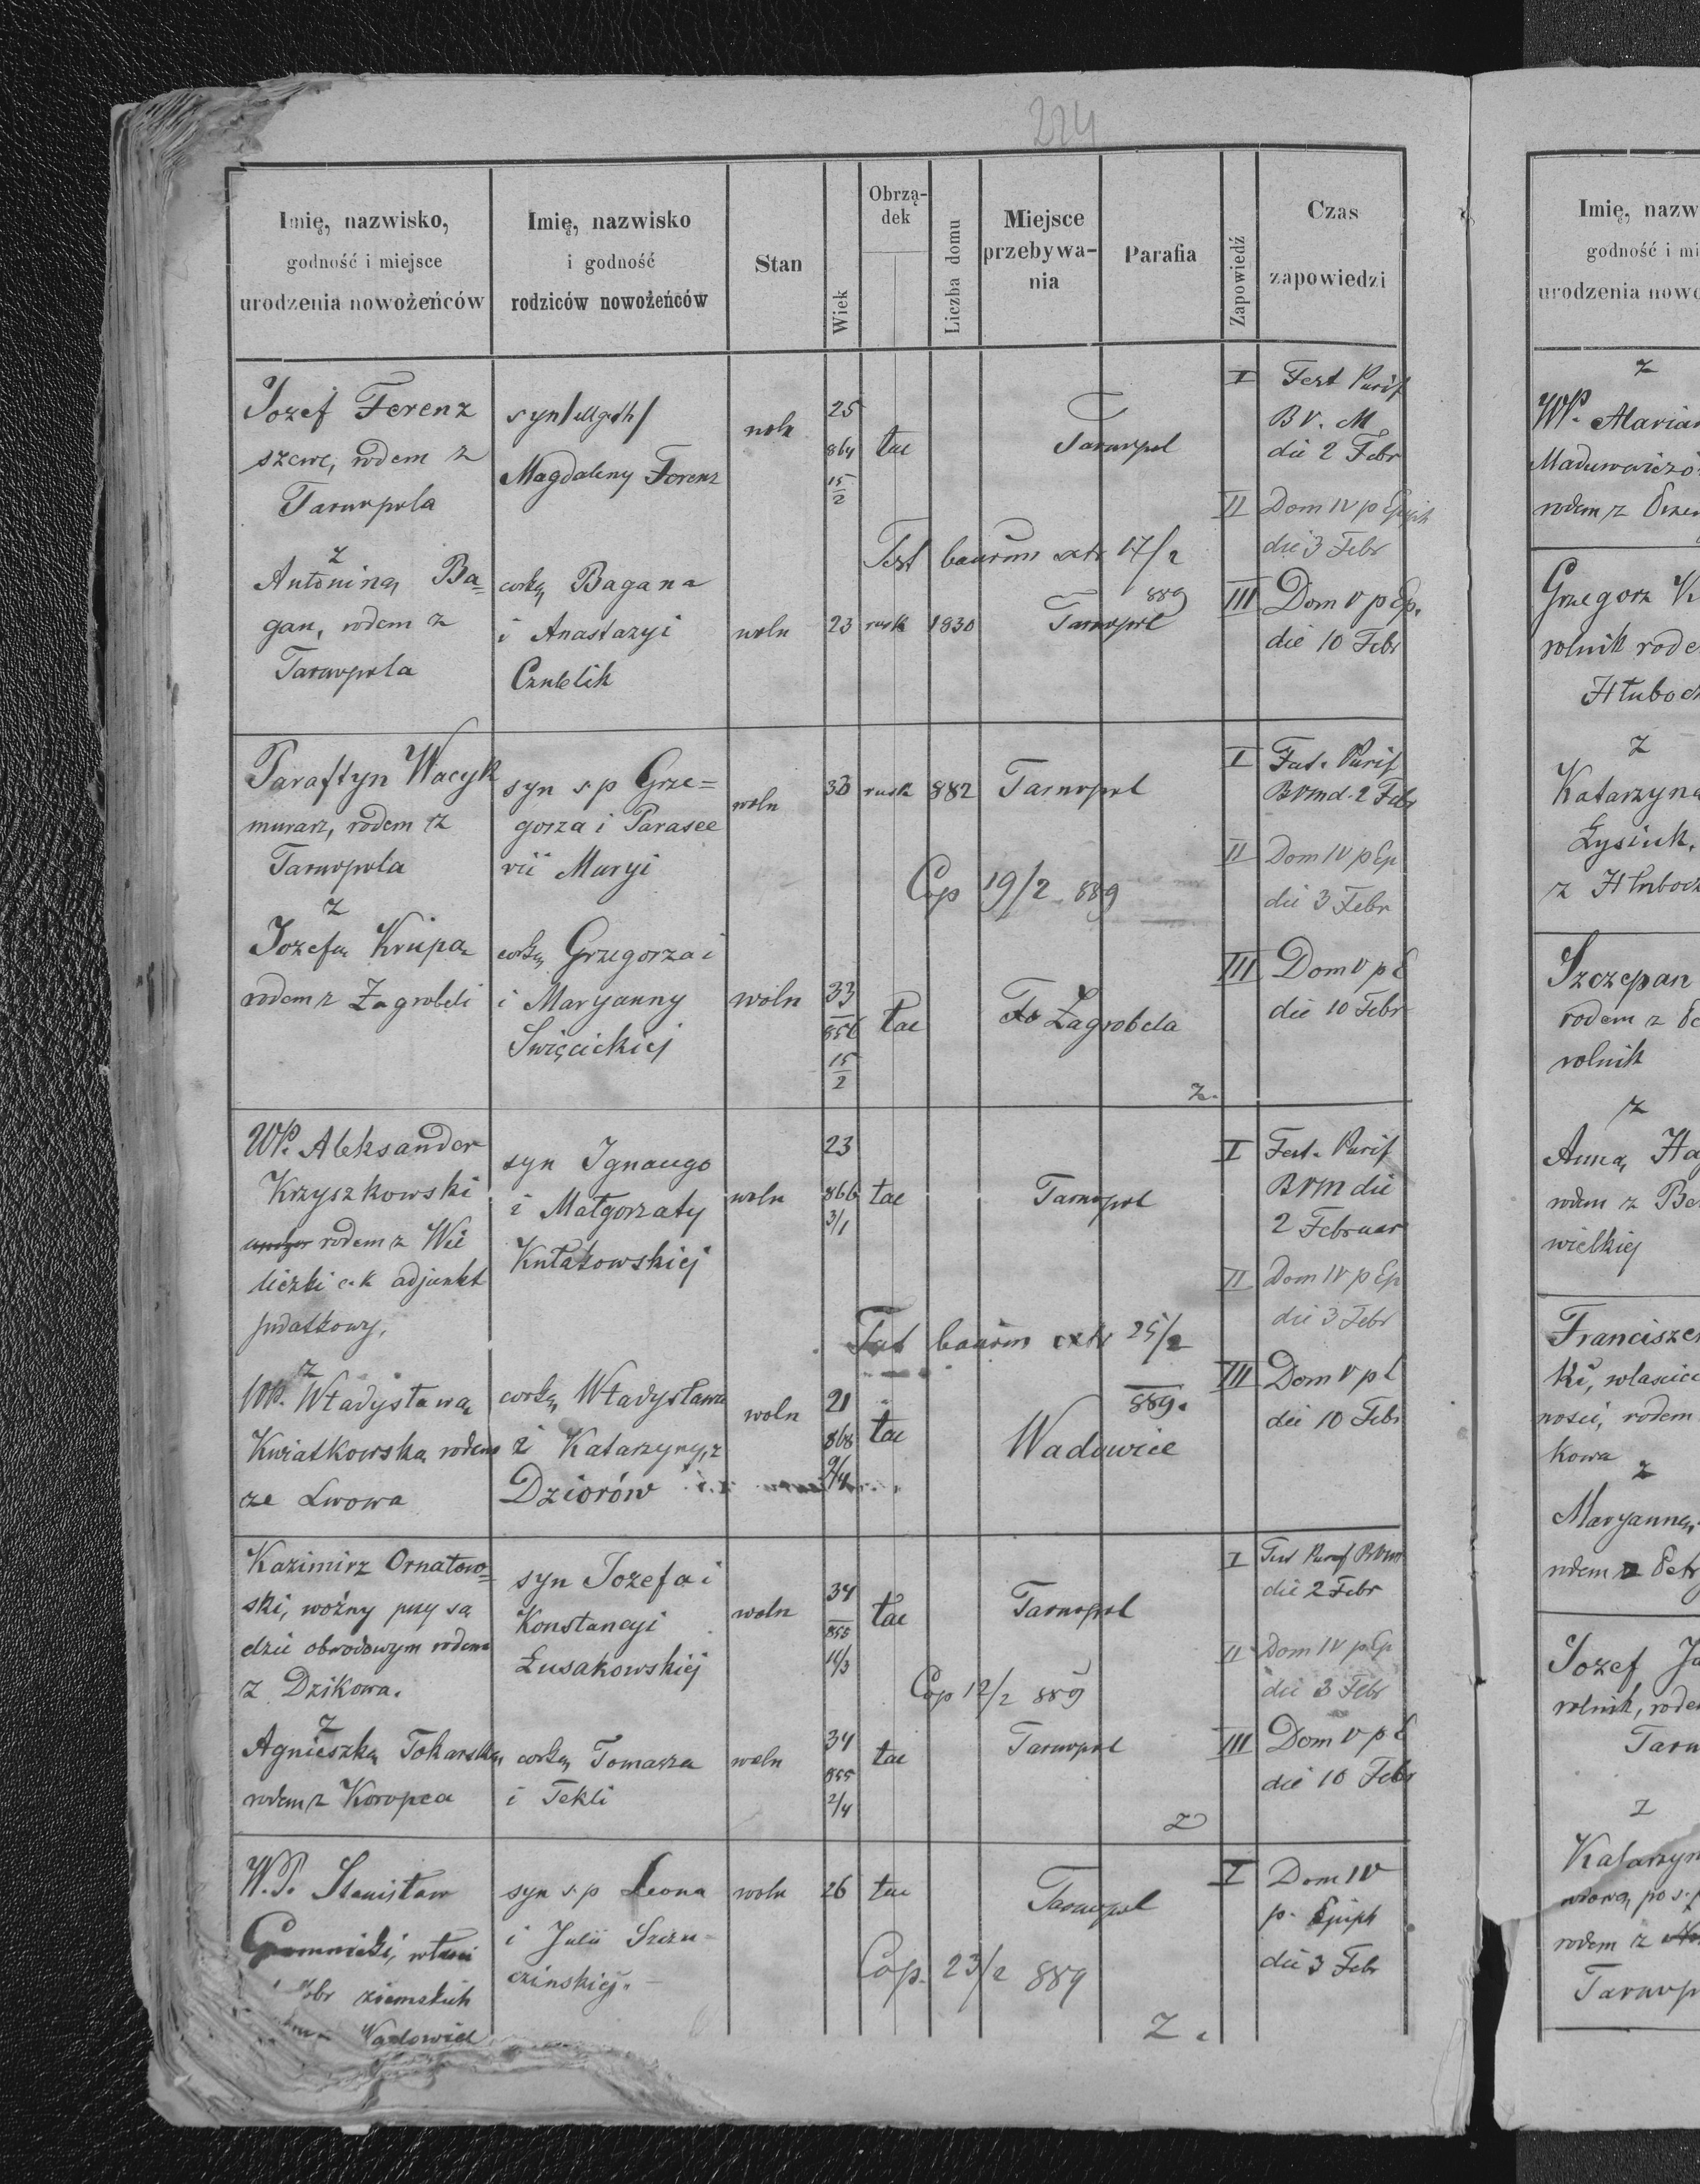 224
Imię, nazwisko,
godność i miejsce
urodzenia nowożeńców
Imię, nazwisko
i godność
rodziców nowożeńców
Stan
Wiek
Obrządek
Liczba domu
Miejsce
przebywa-
nia
Parafia
Zapowiedź
Czas
zapowiedzi
Jozef Ferenz
szewc, rodem z
Tarnopola
syn
Magdaleny Ferenz
woln
25
864
15/2
łac
Tarnopol
I Fest Purif
B V. M
die 2 Febr
II Dom IV p Epiph
die 3 Febr
17/2
889
z
Antoniną Ba=
gan, rodem z
Tarnopola
corką Bagana
i Anastazyi
Czublik
woln
23
rusk
1830
Tarnopol
III Dom V p Ep.
die 10 Febr
Paraftyn Wacyk
murarz, rodem z
Tarnopola
syn s p Grze=
gorza i Parasce
vii Maryi
woln
33
rusk
882
Tarnopol
I Fest. Purif
BVM d. 2 Febr
II Dom IV p Ep
die 3 Febr
Cop 19/2 889
z
Jozefą Krupą
rodem z Zagrobeli
corką Grzegorza i
i Maryanny
Święcickiej
woln
33
856
15/2
łac
Zagrobela
III Dom V p E
die 10 Febr
z.
WP. Aleksander
Krzyszkowski
rodem z Wie
liczki c. k adjunkt
podatkowy,
syn Ignacego
i Małgorzaty
Kułakowskiej
woln
23
866
3/1
łac
Tarnopol
I Fest. Purif
BVM die
2 Februar
II Dom IV p Ep
die 3 Febr
25/2
889.
z
WP. Władysławą
Kwiatkowską rodem
ze Lwowa
corką Władysława
i Katarzyny, z
Dziorów
woln
21
868
9/4
łac
Wadowice
III Dom V p E
die 10 Febr
Kazimirz Ornatow=
ski, woźny przy są
dzie obwodowym rodem
z Dzikowa.
syn Jozefa i
Konstancyi
Łusakowskiej
woln
34
855
14/3
łac
Tarnopol
I Fest Purif BVM
die 2 Febr
II Dom IV p Ep
die 3 Febr
Cop 12/2 889
z
Agnieszką Tokarską,
rodem z Koropca
corką Tomasza
i Tekli
woln
34
855
2/4
łac
Tarnopol
III Dom V p E
die 10 Febr
z
W.P. Stanisław
ziemskich
Wadowice
syn s p Leona
i Julii
woln
26
łac
Tarnopol
I Dom IV
p. Epiph
die 3 Febr
Cop. 23/2 889
Z.
Imię, nazw
godność i mi
urodzenia nowo
z
WP. Marian
rodem z
Grzegorz K
rolnik rode
Hłuboc
z
Katarzyna
Łysiuk,
z Hłubocz
Szczepan
rodem z
rolnik
z
Anną Ha
rodem z Be
wielkiej
Francisze
ki, właścic
ności, rodem
kowa
z
Maryanną
rodem z Petr
Jozef Ja
rolnik, rode
Tarn
z
Katarzyn
wdową po s. p
rodem z
Tarnop